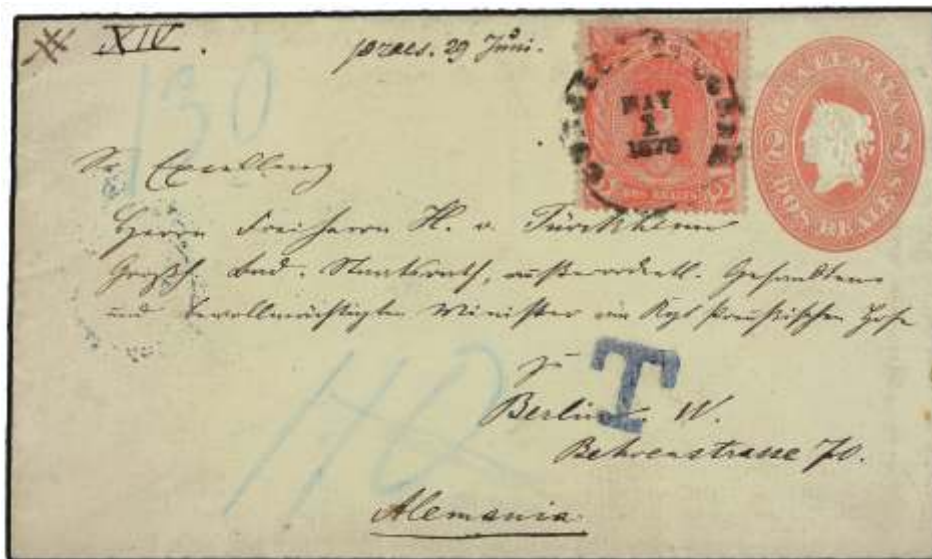 XIV. praes. 29 Juni.
130
MAY
1
1878
GUATEMALA
2 2
DOS REALES
Sr Excellenz
Herrn Freiherrn H. v. Türckheim
Großh. Bad. Staatsrath, außerordentl. Gesandten
und bevollmächtigten Minister am Kgl Preußischen Hofe
zu
T
Berlin. W.
Behrenstrasse 70.
Alemania